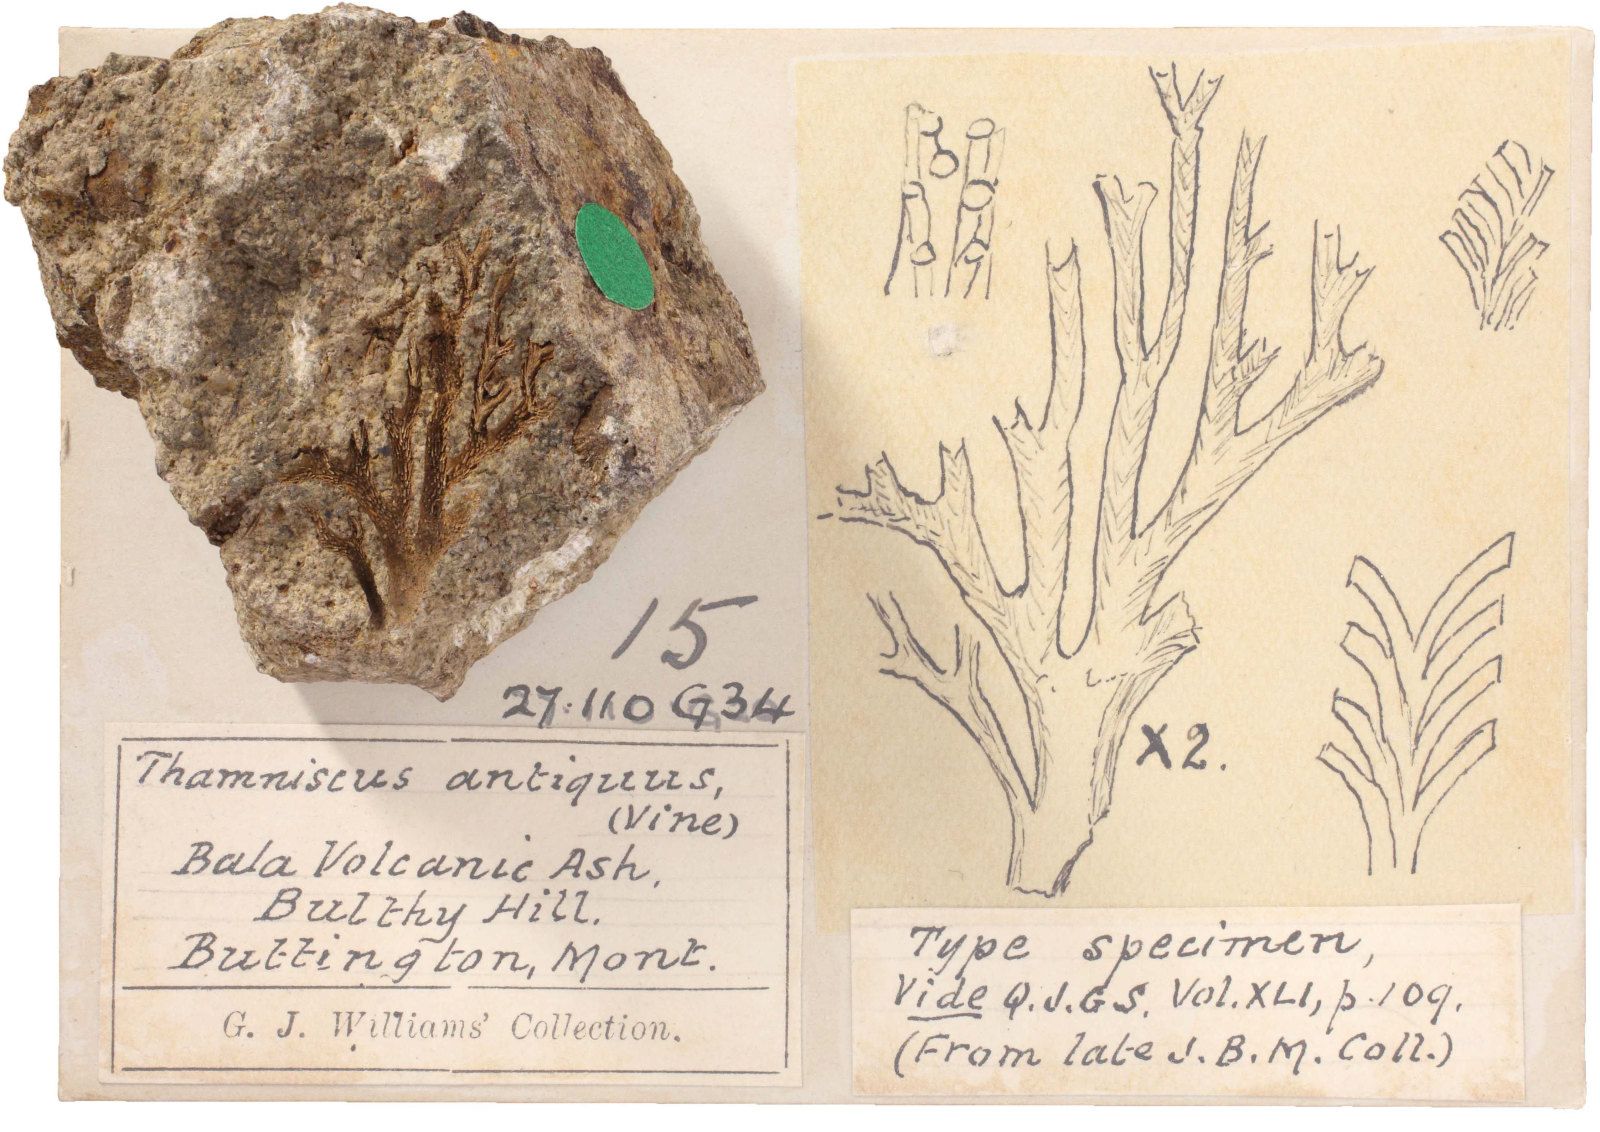 15
27.110 G34
Thamniscus antiquus,
(Vine)
Bala Volcanic Ash,
Bulthy Hill.
Buttington, Mont.
G. J. Williams' Collection.
X2.
Type specimen,
Vide Q.J.G.S. Vol. XLI, p. 109.
(From late J. B. M. Coll.)